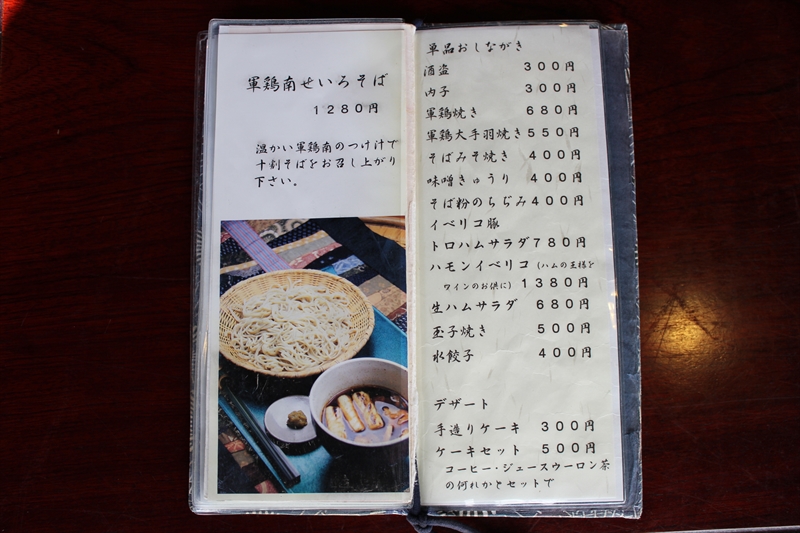 軍鶏南せいろそば
１２８０円
温かい軍鶏南のつけ汁で
十割そばをお召し上がり
下さい。
単品おしながき
酒盗 ３００円
内子 ３００円
軍鶏焼き ６８０円
軍鶏大手羽焼き ５５０円
そばみそ焼き ４００円
味噌きゅうり ４００円
そば粉のちぢみ ４００円
イベリコ豚
トロハムサラダ ７８０円
ハモンイベリコ (ハムの王様を
ワインのお供に) １３８０円
生ハムサラダ ６８０円
玉子焼き ５００円
水餃子 ４００円
デザート
手造りケーキ ３００円
ケーキセット ５００円
コーヒー・ジュースウーロン茶
の何れかとセットで